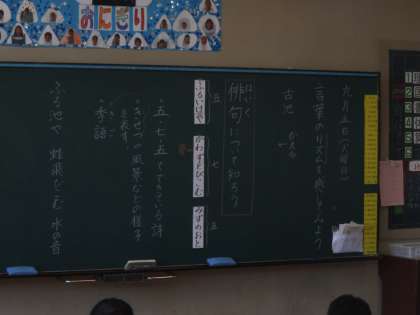 おにぎり
九月五日(火曜日)
言葉のリズムを楽しみよう
古池 かえる
はいく
俳句について知ろう
五
ふるいけや
七
かわずとびこむ
五
みずのおと
・五・七・五でできている詩
・きせつの風景などの様子
を表す。
・季語
ふる池や 蛙飛びこむ 水の音
1
2
3
4
5
6